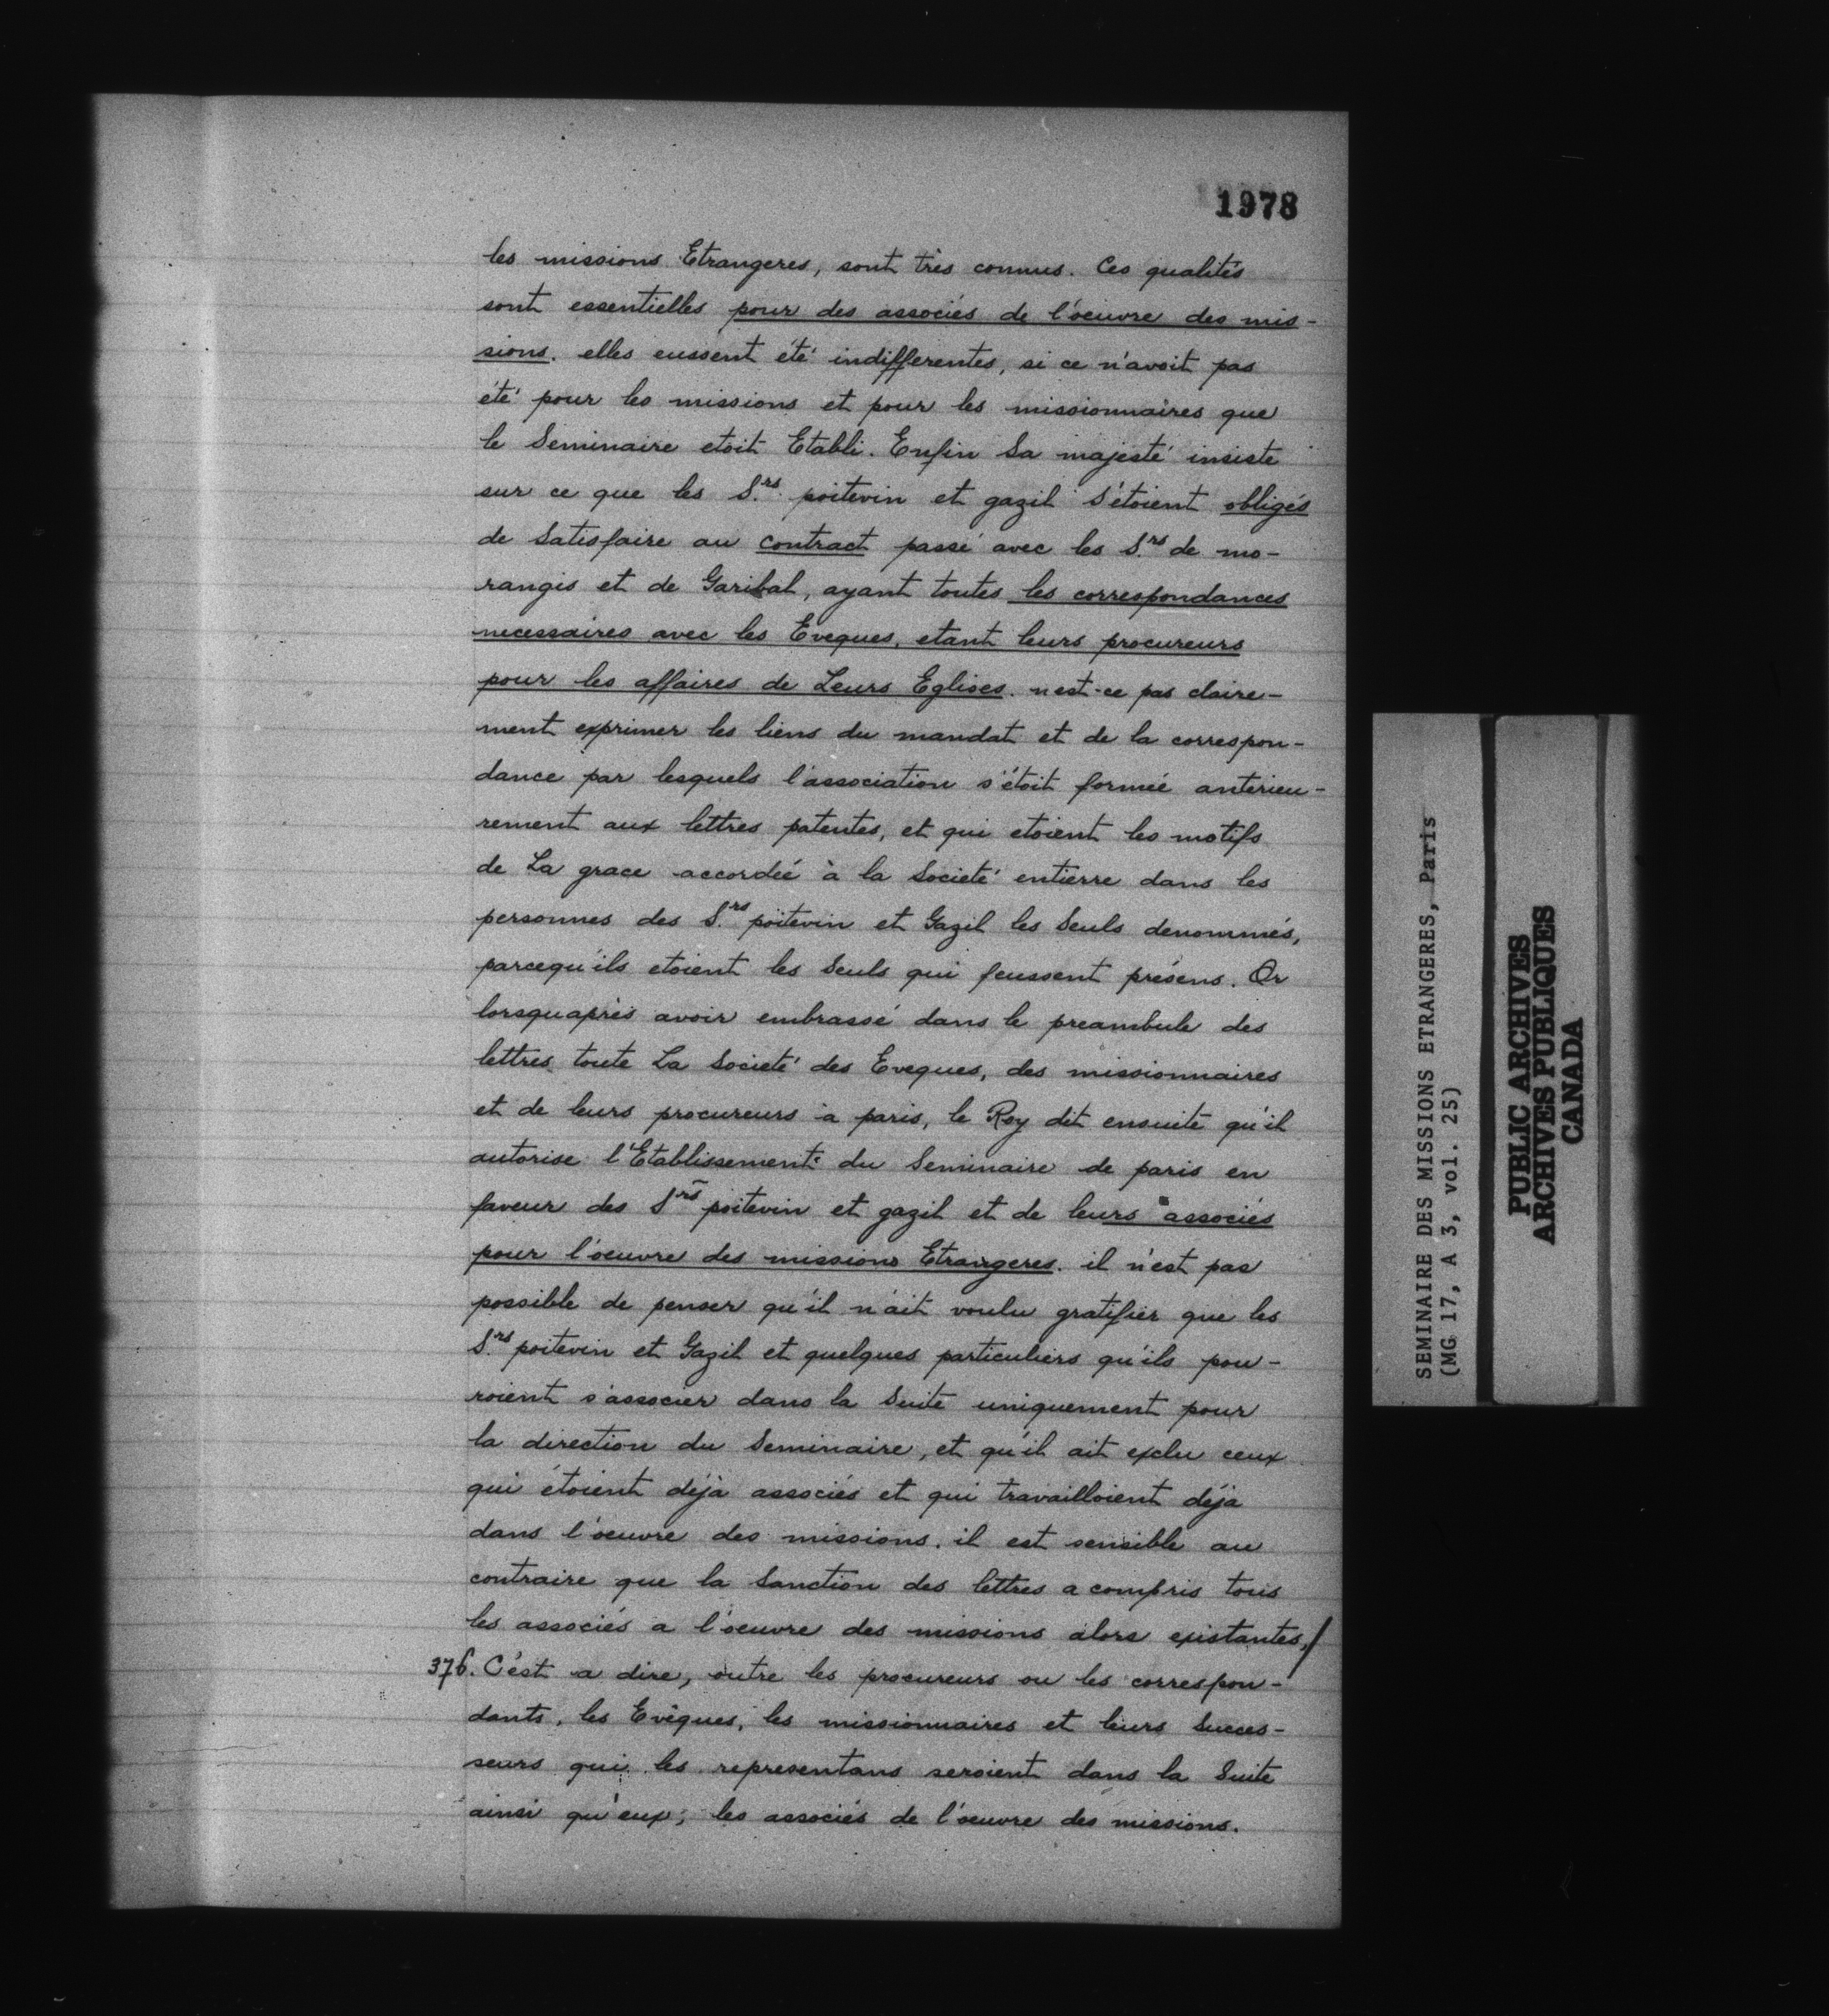 1978
les missions Etrangeres, sont très connus. Ces qualités
sont essentielles pour des associés de l'oeuvre des mis-
sions. elles eussent été indifferentes, si ce n'avoit pas
été pour les missions et pour les missionnaires que
le Seminaire etoit Etabli. Enfin Sa majesté insiste
sur ce que les S.rs poitevin et gazil s'étoient obligés
de Satisfaire au contract passé avec les S.rs de mo-
rangis et de Garibal, ayant toutes les correspondances
necessaires avec les Eveques, etant leurs procureurs
pour les affaires de Leurs Eglises. n'est-ce pas claire-
ment exprimer les liens du mandat et de la correspon-
dance par lesquels l'association s'étoit formée anterieu-
rement aux lettres patentes, et qui etoient les motifs
de La grace accordée à la Societé entierre dans les
personnes des S.rs poitevin et Gazil les Seuls denommés,
parcequ'ils etoient les Seuls qui feussent présens. Or
lorsquaprès avoir embrassé dans le preambule des
lettres toute La Societé des Eveques, des missionnaires
et de leurs procureurs a paris, le Roy dit ensuite qu'il
autorise l'Etablissement du Seminaire de paris en
faveur des Srs poitevin et gazil et de leurs associés
pour l'oeuvre des missions Etrangeres. il n'est pas
possible de penser qu'il n'ait voulu gratifier que les
S.rs poitevin et Gazil et quelques particuliers qu'ils pou-
roient s'associer dans la Suite uniquement pour
la direction du Seminaire, et qu'il ait exclu ceux
qui étoient déjà associés et qui travailloient déja
dans l'oeuvre des missions. il est sensible au
contraire que la Sanction des lettres a compris tous
les associés a l'oeuvre des missions alors existantes,/
376. C'est a dire, outre les procureurs ou les correspon-
dants, les Evêques, les missionnaires et leurs Succes-
seurs qui les representans seroient dans la Suite
ainsi qu'eux, les associés de l'oeuvre des missions.
SEMINAIRE DES MISSIONS ETRANGERES, Paris
(MG 17, A 3, vol. 25)
PUBLIC ARCHIVES
ARCHIVES PUBLIQUES
CANADA